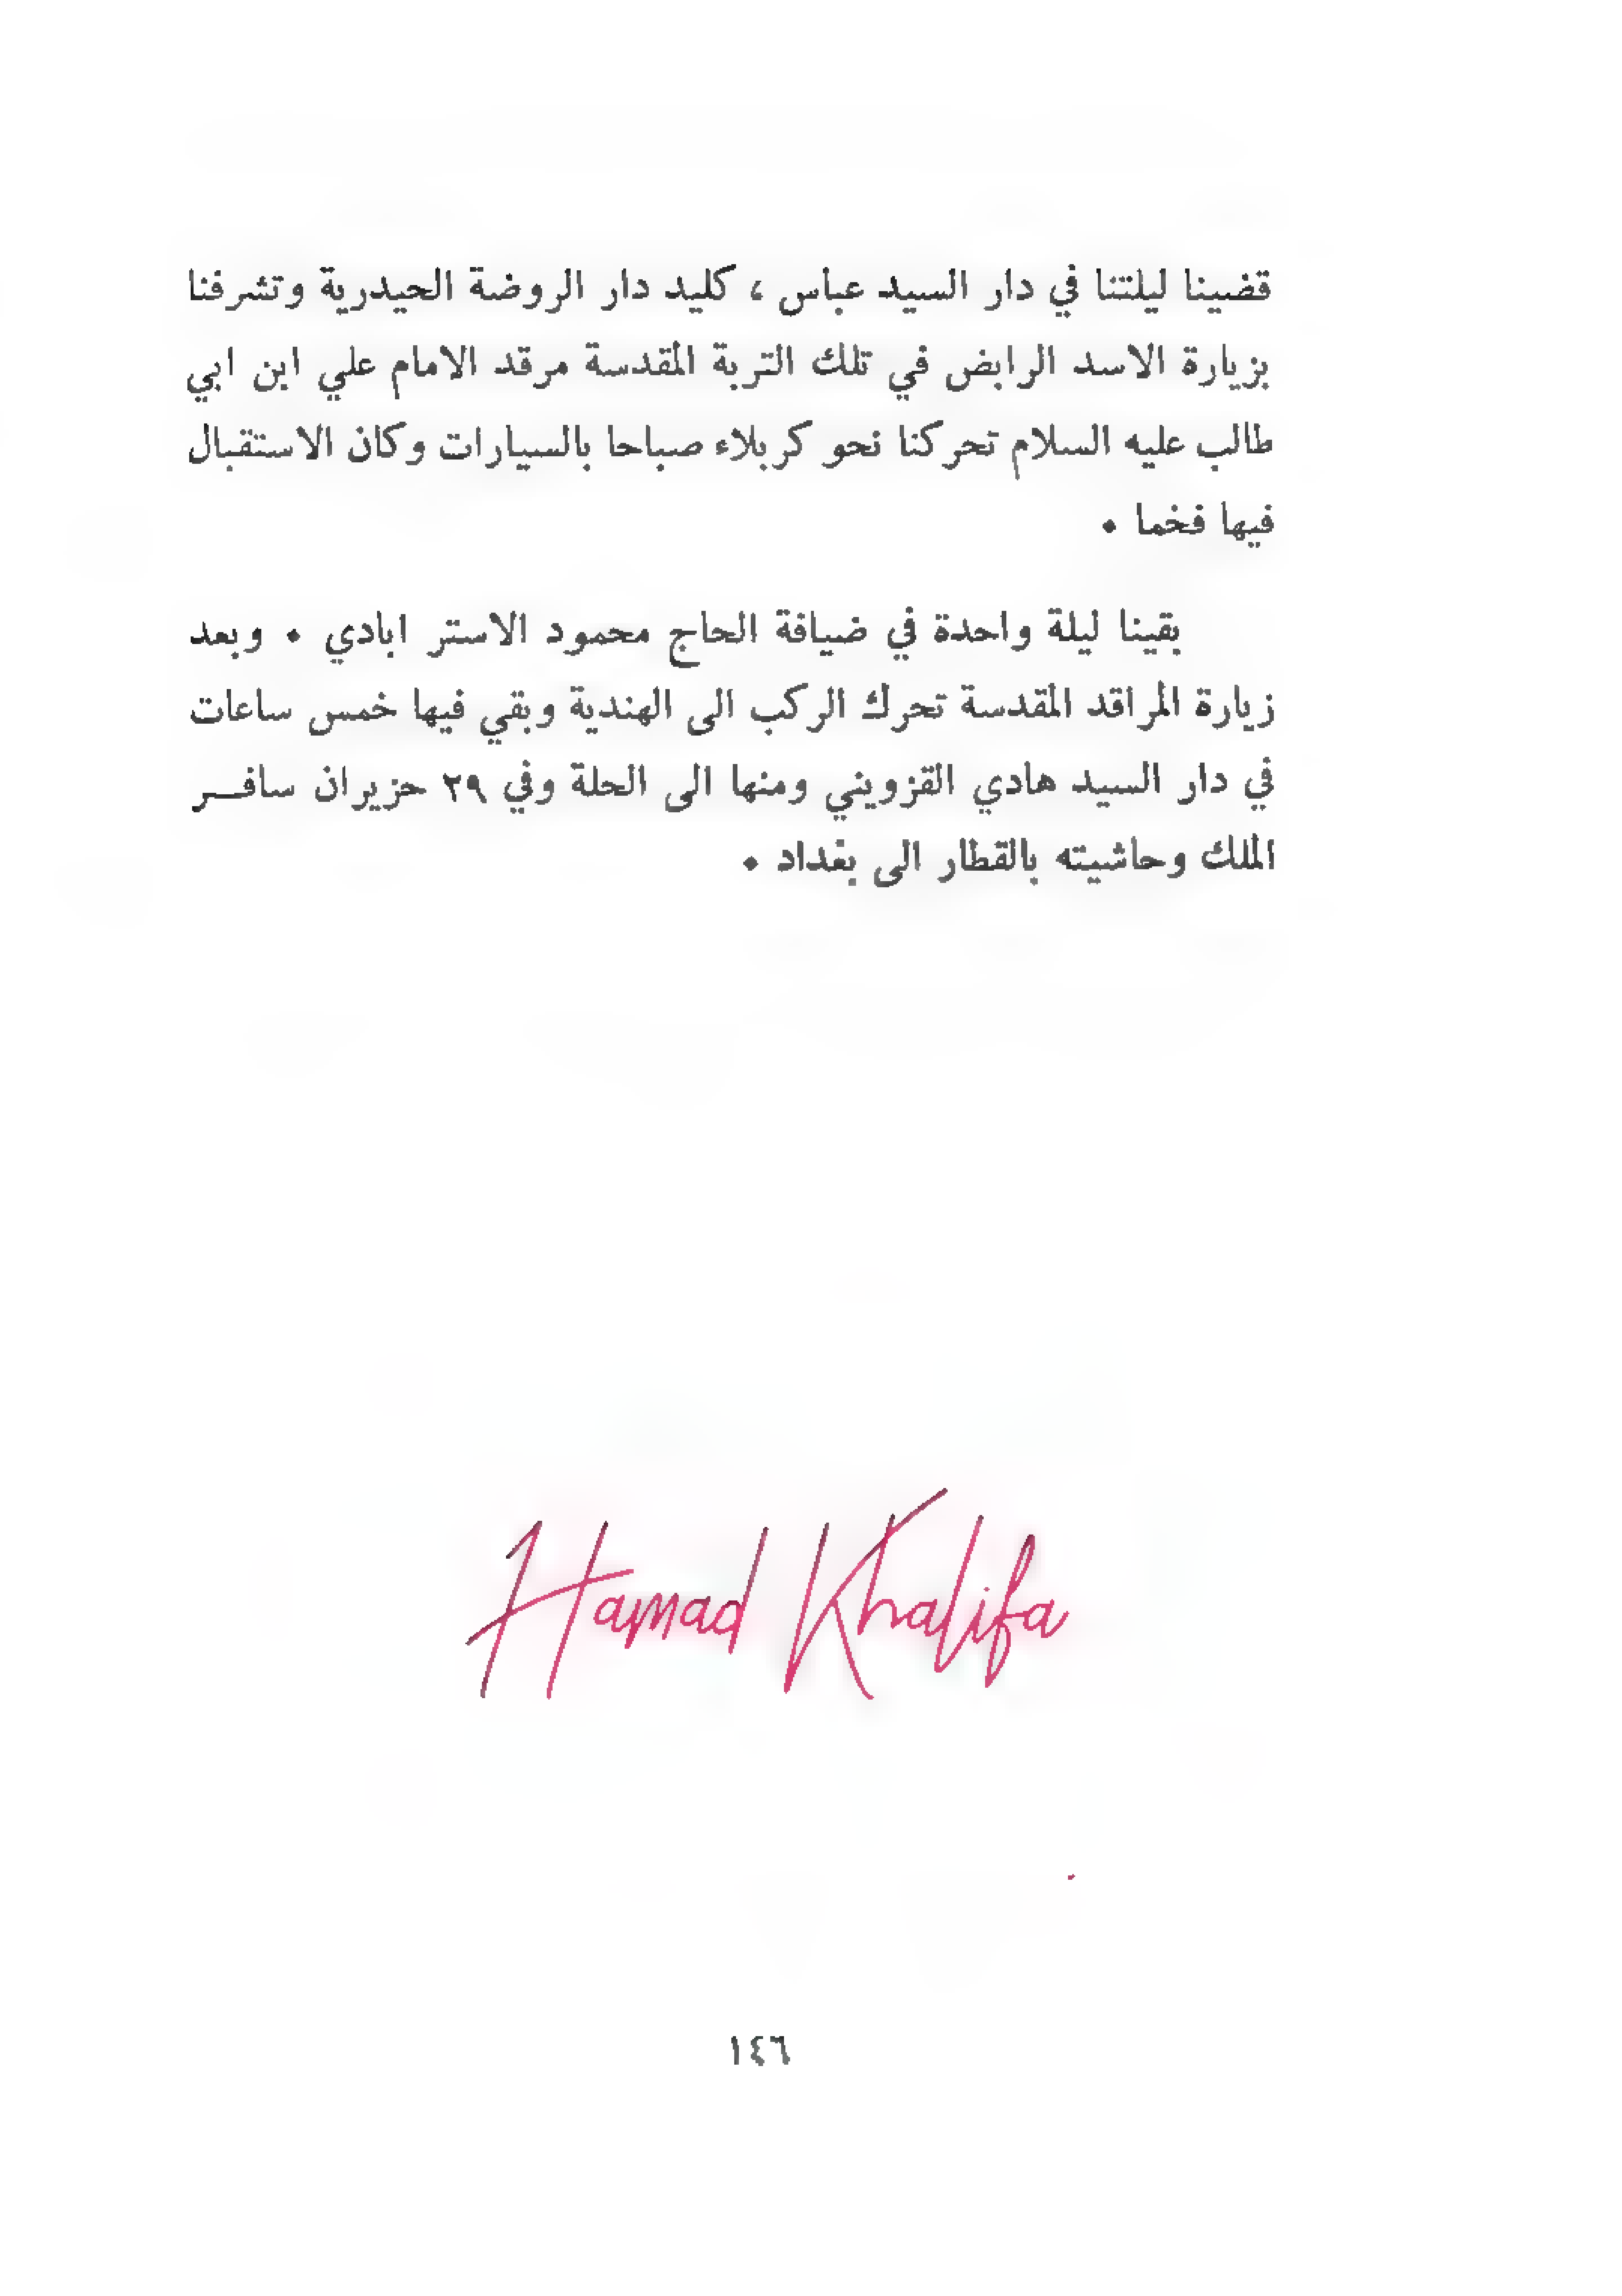 قضينا ليلتنا في دار السيد عباس ، كليد دار الروضة الحيدرية وتشرفنا
بزيارة الاسد الرابض في تلك التربة المقدسة مرقد الامام علي ابن ابي
طالب عليه السلام تحركنا نحو كربلاء صباحا بالسيارات وكان الاستقبال
فيها فخما •
بقينا ليلة واحدة في ضيافة الحاج محمود الاستر ابادي • وبعد
زيارة المراقد المقدسة تحرك الركب الى الهندية وبقي فيها خمس ساعات
في دار السيد هادي القزويني ومنها الى الحلة وفي ٢٩ حزيران سافـــر
الملك وحاشيته بالقطار الى بغداد •
Hamad Khalifa
١٤٦